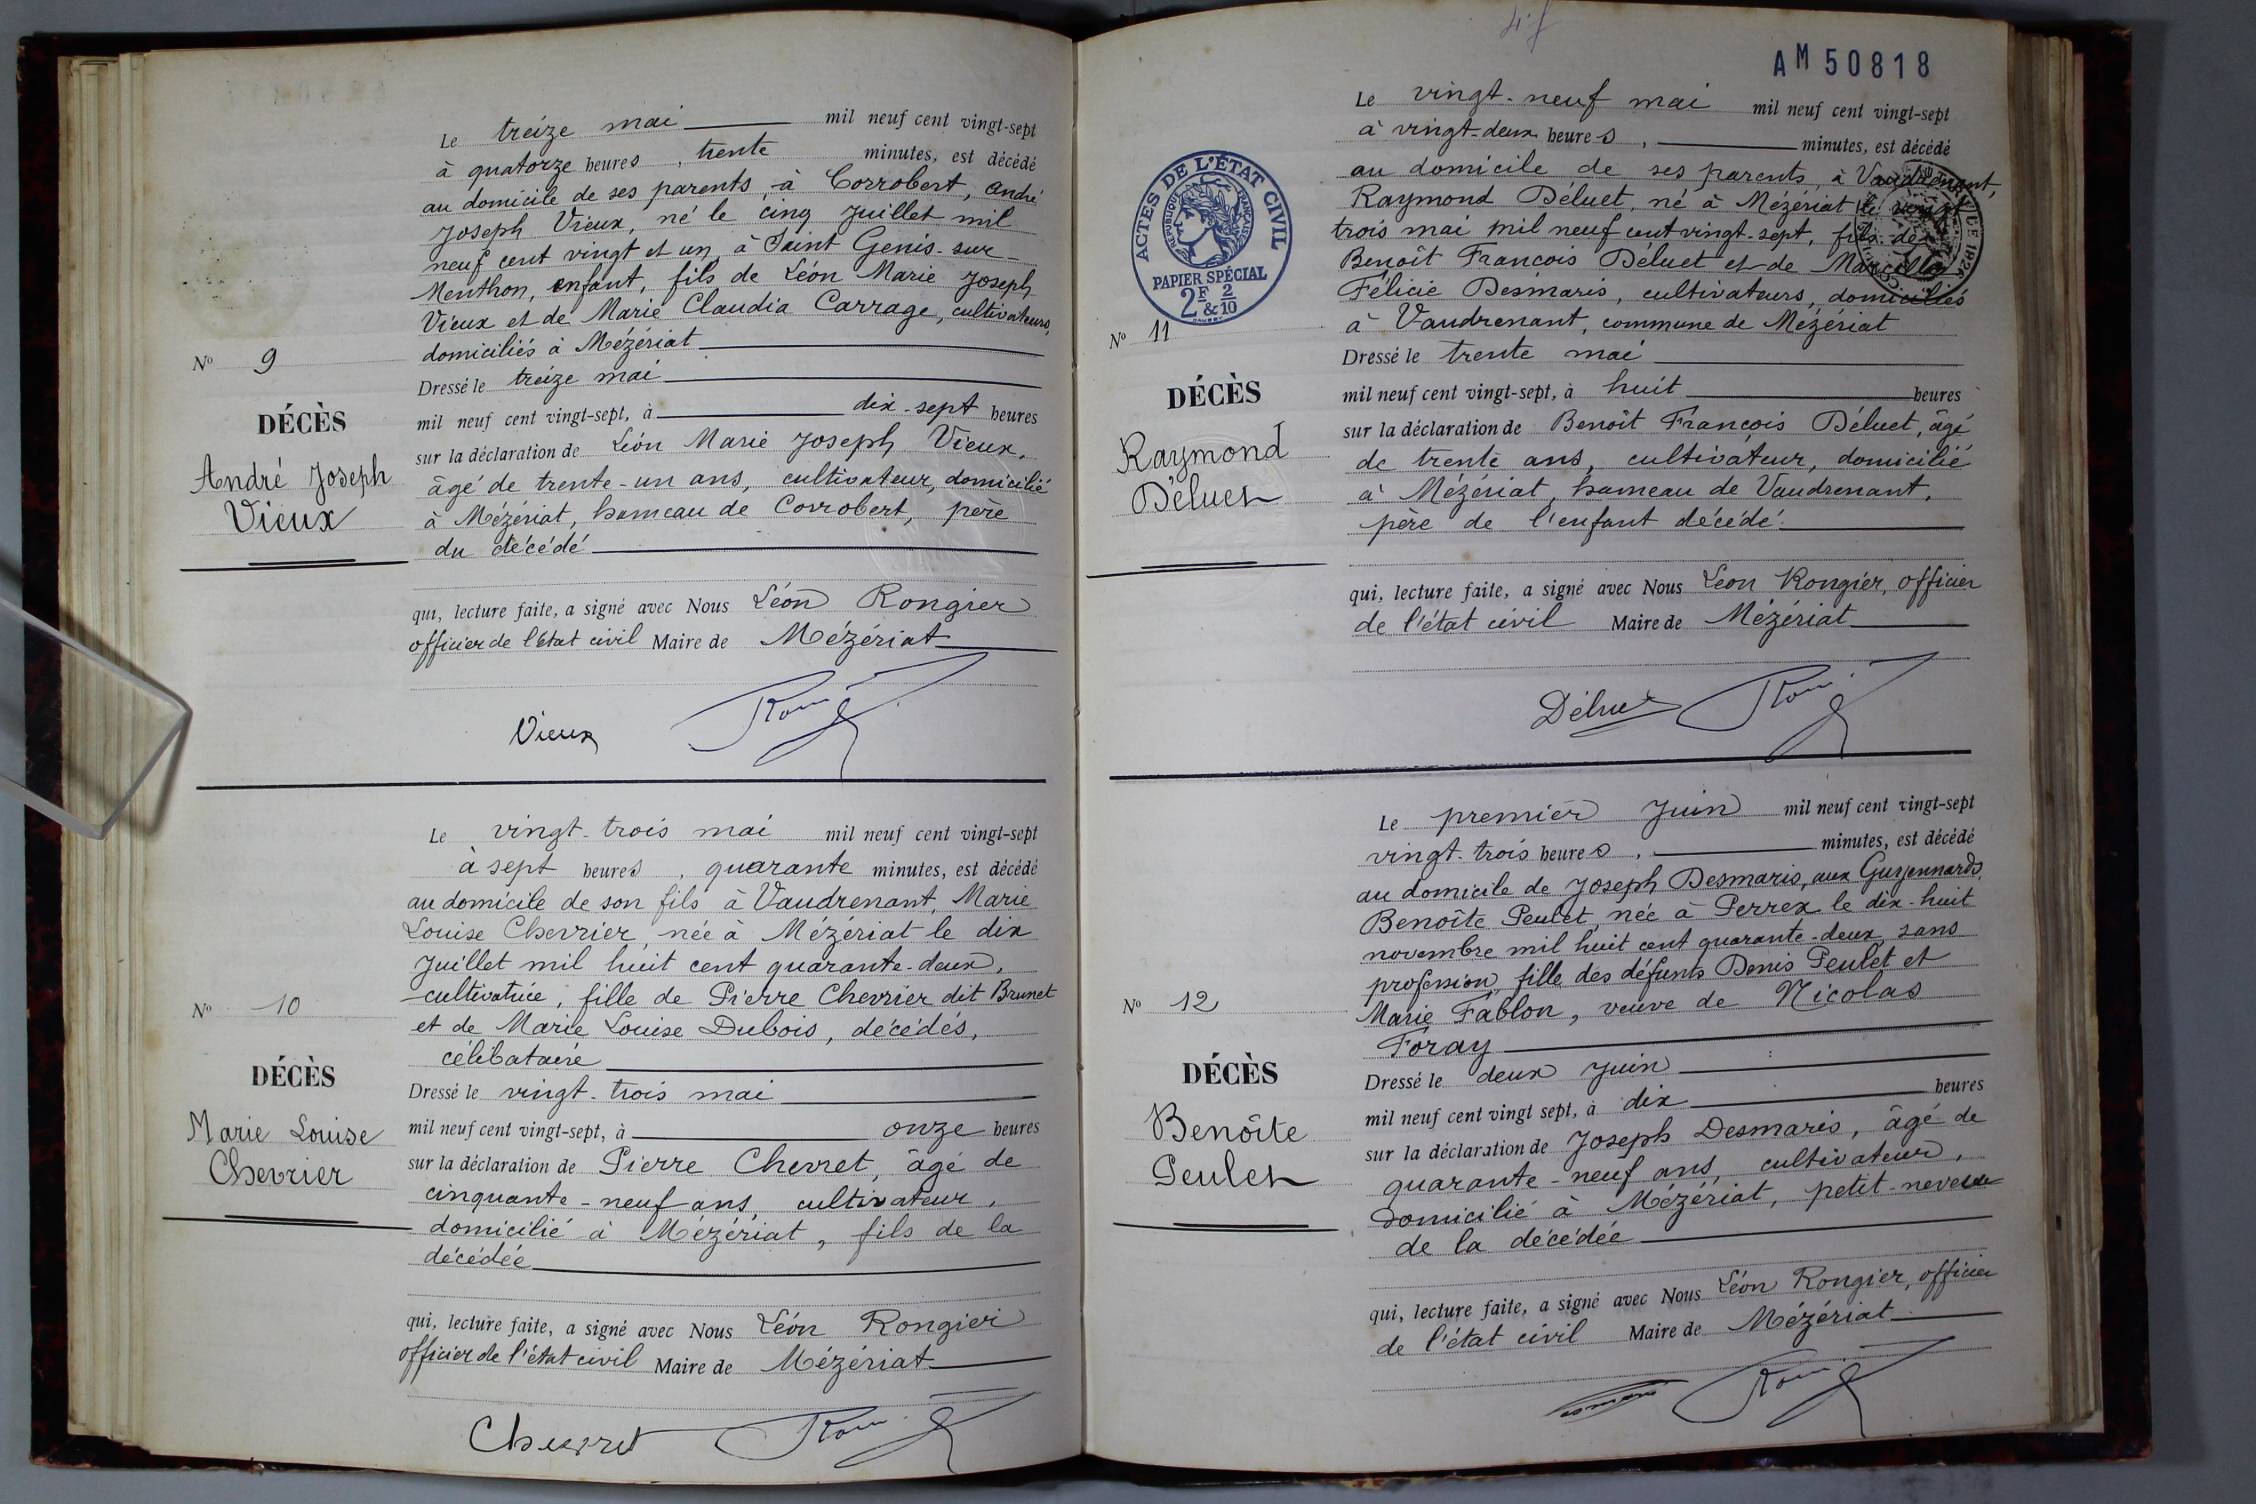 Le treize mai mil neuf cent vingt-sept
à quatorze heures, trente minutes, est décédé
au domicile de ses parents, à Corrobert, André
Joseph Vieux, né le cinq Juillet mil
neuf cent vingt et un, à Saint Genis-sur-
Menthon, enfant, fils de Léon Marie Joseph
Vieux et de Marie Claudia Carrage, cultivateurs,
domiciliés à Mézériat
Dressé le treize mai
mil neuf cent vingt-sept, à dix-sept heures
sur la déclaration de Léon Marie Joseph Vieux,
âgé de trente-un ans, cultivateur, domicilié
à Mézériat, hameau de Corrobert, père
du décédé
qui, lecture faite, a signé avec Nous Léon Rongier
officier de l'état civil Maire de Mézériat
Vieux
No 9
DÉCÈS
André Joseph
Vieux
Le vingt-trois mai mil neuf cent vingt-sept
à sept heures, quarante minutes, est décédé
au domicile de son fils à Vaudrenant, Marie
Louise Chevrier, née à Mézériat le dix
Juillet mil huit cent quarante-deux,
cultivatrice, fille de Pierre Chevrier dit Brunet
et de Marie Louise Dubois, décédés,
célibataire
Dressé le vingt-trois mai
mil neuf cent vingt-sept, à onze heures
sur la déclaration de Pierre Chevret, âgé de
cinquante-neuf ans, cultivateur,
domicilié à Mézériat, fils de la
décédée
qui, lecture faite, a signé avec Nous Léon Rongier
officier de l'état civil Maire de Mézériat
Chevret
No 10
DÉCÈS
Marie Louise
Chevrier
AM 50818
ACTES DE L'ÉTAT CIVIL
RÉPUBLIQUE FRANÇAISE
PAPIER SPÉCIAL
2F & 2/10
Le vingt-neuf mai mil neuf cent vingt-sept
à vingt-deux heures, minutes, est décédé
au domicile de ses parents à Vaudrenant,
Raymond Déluet, né à Mézériat le vingt
trois mai mil neuf cent vingt-sept, fils de
Benoît François Déluet et de Marcelle
Félicie Desmaris, cultivateurs, domiciliés
à Vaudrenant, commune de Mézériat
Dressé le trente mai
mil neuf cent vingt-sept, à huit heures
sur la déclaration de Benoît François Déluet, âgé
de trente ans, cultivateur, domicilié
à Mézériat, hameau de Vaudrenant,
père de l'enfant décédé
qui, lecture faite, a signé avec Nous Léon Rongier, officier
de l'état civil Maire de Mézériat
Déluet
No 11
DÉCÈS
Raymond
Déluet
Le premier Juin mil neuf cent vingt-sept
vingt-trois heures, minutes, est décédé
au domicile de Joseph Desmaris, aux Guyennards,
Benoîte Peulet, née à Perrex le dix-huit
novembre mil huit cent quarante-deux, sans
profession, fille des défunts Denis Peulet et
Marie Fablon, veuve de Nicolas
Foray
Dressé le deux Juin
mil neuf cent vingt sept, à dix heures
sur la déclaration de Joseph Desmaris, âgé de
quarante-neuf ans, cultivateur,
domicilié à Mézériat, petit-neveu
de la décédée
qui, lecture faite, a signé avec Nous Léon Rongier, officier
de l'état civil Maire de Mézériat
No 12
DÉCÈS
Benoîte
Peulet